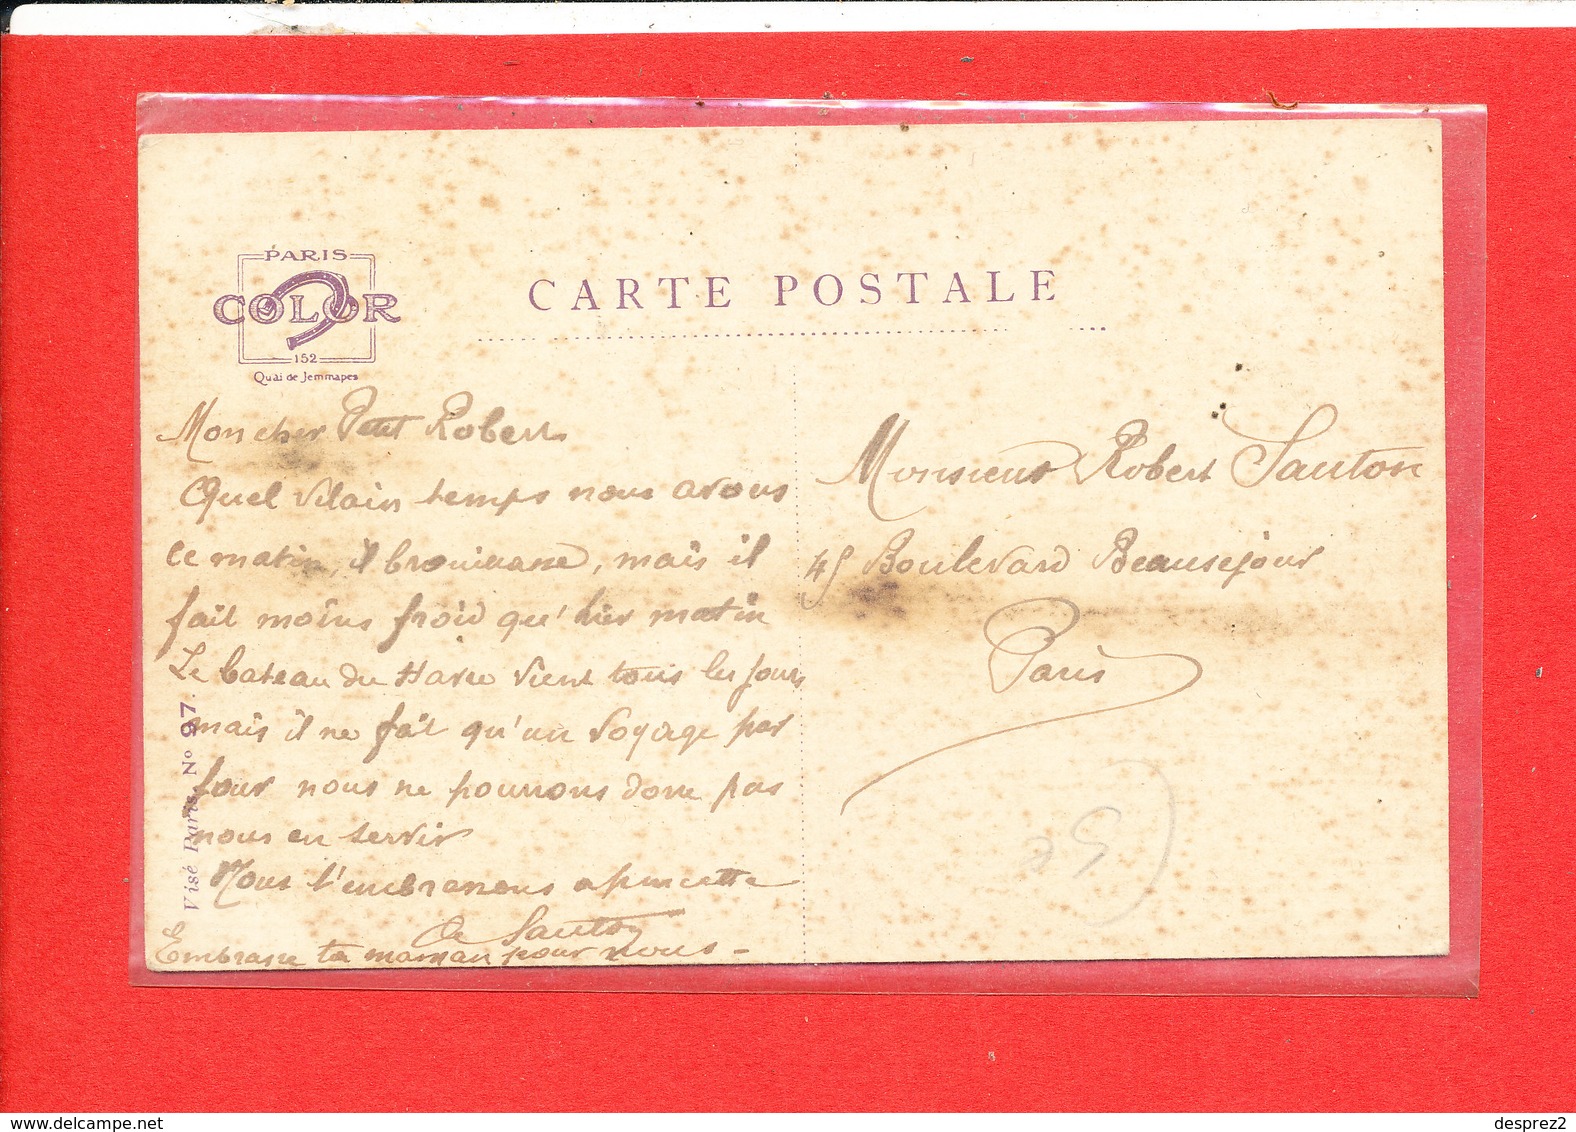 PARIS
COLOR
152
Quai de Jemmapes
CARTE POSTALE
Mon cher Petit Robert
Quel vilain temps nous avons
ce matin, il brouillasse, mais il
fait moins froid qu'hier matin
Le bateau du Havre vient tous les jours
mais il ne fait qu'un voyage par
jour nous ne pourrons donc pas
nous en servir
Nous t'embrassons
Sauton
Embrasse ta maman pour nous -
Visé Paris, N° 97.
Monsieur Robert Sauton
45 Boulevard Beausejour
Paris
desprez2